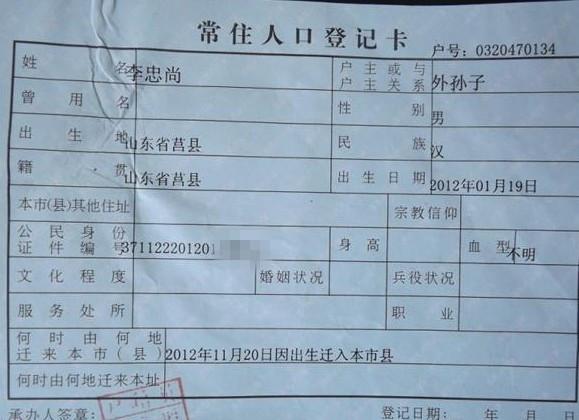 常住人口登记卡
户号：0320470134
姓名 李忠尚 户主或与户主关系 外孙子
曾用名 性别 男
出生地 山东省莒县 民族 汉
籍贯 山东省莒县 出生日期 2012年01月19日
本市(县)其他住址 宗教信仰
公民身份证件编号 371122201201 身高 血型 不明
文化程度 婚姻状况 兵役状况
服务处所 职业
何时由何地迁来本市(县) 2012年11月20日因出生迁入本市县
何时由何地迁来本址
承办人签章： 登记日期： 年 月 日